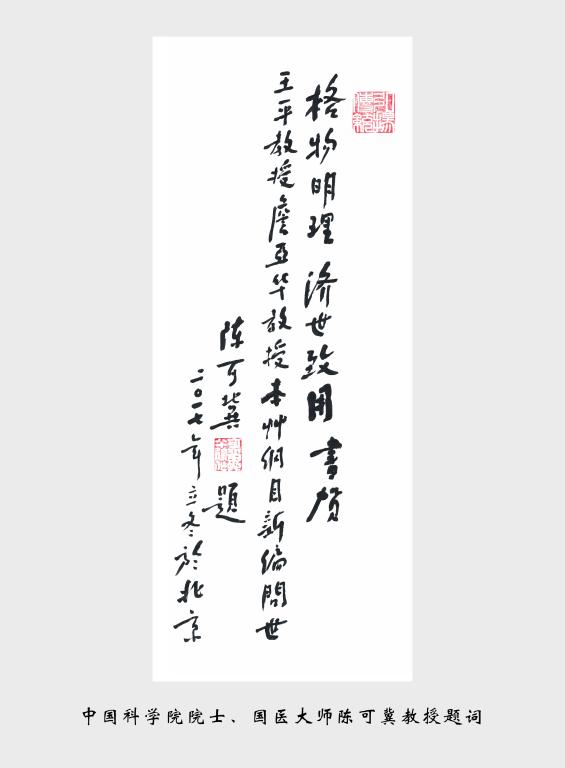 格物明理 济世致用 書贺
王平教授詹亚华教授本艸纲目新编問世
陈可冀 題
二〇一七年立冬於北京
中国科学院院士、国医大师陈可冀教授题词